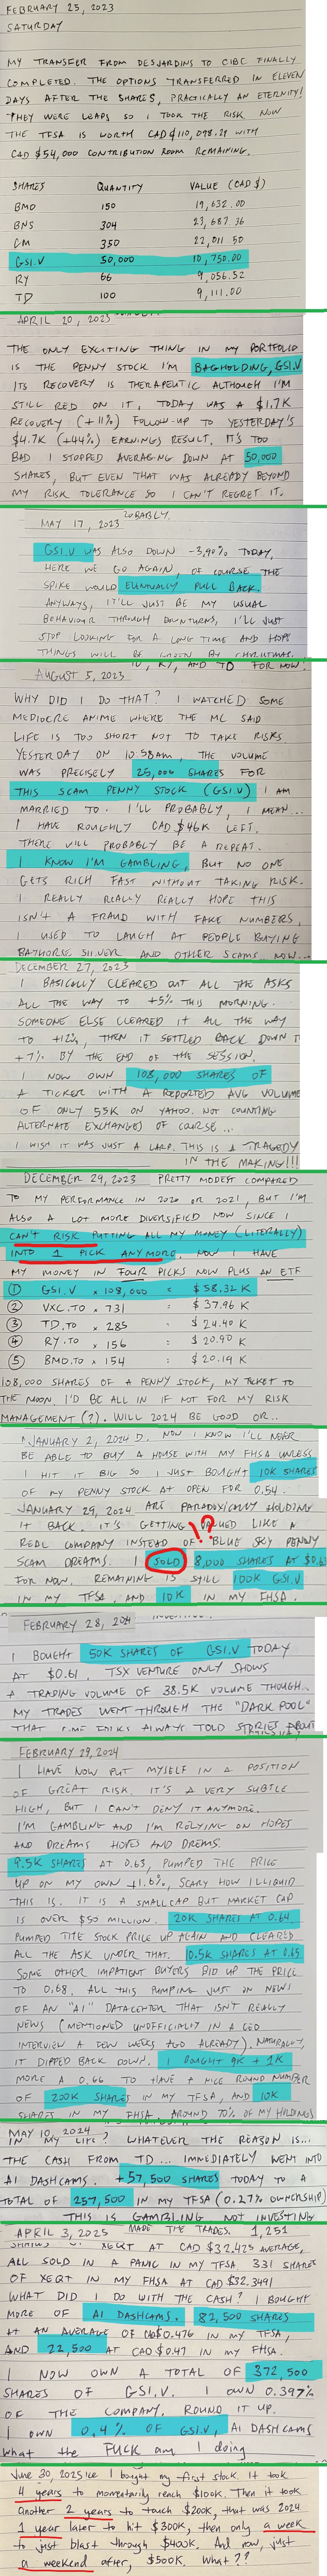 FEBRUARY 25, 2023
SATURDAY
MY TRANSFER FROM DESJARDINS TO CIBC FINALLY
COMPLETED. THE OPTIONS TRANSFERRED IN ELEVEN
DAYS AFTER THE SHARES, PRACTICALLY AN ETERNITY!
THEY WERE LEAPS SO I TOOK THE RISK. NOW
THE TFSA IS WORTH CAD $110,098.21 WITH
CAD $54,000 CONTRIBUTION ROOM REMAINING.
SHARES QUANTITY VALUE (CAD $)
BMO 150 19,632.00
BNS 304 23,687.36
CM 350 22,011.50
GSI.V 50,000 10,750.00
RY 66 9,056.52
TD 100 9,111.00
APRIL 20, 2023
THE ONLY EXCITING THING IN MY PORTFOLIO
IS THE PENNY STOCK I'M BAGHOLDING, GSI.V
ITS RECOVERY IS THERAPEUTIC ALTHOUGH I'M
STILL RED ON IT. TODAY WAS A $1.7K
RECOVERY (+11%) FOLLOW-UP TO YESTERDAY'S
$4.7K (+44%) EARNINGS RESULT. IT'S TOO
BAD I STOPPED AVERAGING DOWN AT 50,000
SHARES, BUT EVEN THAT WAS ALREADY BEYOND
MY RISK TOLERANCE SO I CAN'T REGRET IT.
MAY 17, 2023
GSI.V WAS ALSO DOWN -3,90% TODAY,
HERE WE GO AGAIN, OF COURSE THE
SPIKE WOULD EVENTUALLY PULL BACK.
ANYWAYS, IT'LL JUST BE MY USUAL
BEHAVIOUR THROUGH DOWNTURNS, I'LL JUST
STOP LOOKING FOR A LONG TIME AND HOPE
THINGS WILL BE GREEN BY CHRISTMAS.
RY, AND TD FOR NOW.
AUGUST 5, 2023
WHY DID I DO THAT? I WATCHED SOME
MEDIOCRE ANIME WHERE THE MC SAID
LIFE IS TOO SHORT NOT TO TAKE RISKS.
YESTERDAY ON 10:58AM, THE VOLUME
WAS PRECISELY 25,006 SHARES FOR
THIS SCAM PENNY STOCK (GSI.V) I AM
MARRIED TO. I'LL PROBABLY, I MEAN...
I HAVE ROUGHLY CAD $46K LEFT.
THERE WILL PROBABLY BE A REPEAT.
I KNOW I'M GAMBLING, BUT NO ONE
GETS RICH FAST WITHOUT TAKING RISK.
I REALLY REALLY REALLY HOPE THIS
ISN'T A FRAUD WITH FAKE NUMBERS,
I USED TO LAUGH AT PEOPLE BUYING
BAYHORSE SILVER AND OTHER SCAMS. NOW...
DECEMBER 27, 2023
I BASICALLY CLEARED OUT ALL THE ASKS
ALL THE WAY TO +5% THIS MORNING.
SOMEONE ELSE CLEARED IT ALL THE WAY
TO +12%, THEN IT SETTLED BACK DOWN T
+7% BY THE END OF THE SESSION.
I NOW OWN 108,000 SHARES OF
A TICKER WITH A REPORTED AVG VOLUME
OF ONLY 55K ON YAHOO. NOT COUNTING
ALTERNATE EXCHANGES OF COURSE...
I WISH IT WAS JUST A LARP. THIS IS A TRAGEDY
IN THE MAKING!!!
DECEMBER 29, 2023 PRETTY MODEST COMPARED
TO MY PERFORMANCE IN 2020 OR 2021, BUT I'M
ALSO A LOT MORE DIVERSIFIED NOW SINCE I
CAN'T RISK PUTTING ALL MY MONEY (LITERALLY)
INTO 1 PICK ANYMORE. NOW I HAVE
MY MONEY IN FOUR PICKS NOW PLUS AN ETF
① GSI.V × 108,000 = $58.32 K
② VXC.TO × 731 = $37.96 K
③ TD.TO × 285 = $24.40 K
④ RY.TO × 156 = $20.90 K
⑤ BMO.TO × 154 = $20.19 K
108,000 SHARES OF A PENNY STOCK, MY TICKET TO
THE MOON. I'D BE ALL IN IF NOT FOR MY RISK
MANAGEMENT (?). WILL 2024 BE GOOD OR..
JANUARY 2, 2024 D. NOW I KNOW I'LL NEVER
BE ABLE TO BUY A HOUSE WITH MY FHSA UNLESS
I HIT IT BIG SO I JUST BOUGHT 10K SHARES
OF MY PENNY STOCK AT OPEN FOR 0.54.
JANUARY 29, 2024 ARE PARADOXICALLY HOLDING
IT BACK. IT'S GETTING VALUED LIKE A !?
REAL COMPANY INSTEAD OF BLUE SKY PENNY
SCAM DREAMS. I SOLD 8,000 SHARES AT $0.6
FOR NOW. REMAINING IS STILL 100K GSI.V
IN MY TFSA, AND 10K IN MY FHSA.
FEBRUARY 28, 2024
I BOUGHT 50K SHARES OF GSI.V TODAY
AT $0.61. TSX VENTURE ONLY SHOWS
A TRADING VOLUME OF 38.5K VOLUME THOUGH..
MY TRADES WENT THROUGH THE "DARK POOL"
THAT SOME FOLKS ALWAYS TOLD STORIES ABOUT
FEBRUARY 29, 2024
I HAVE NOW PUT MYSELF IN A POSITION
OF GREAT RISK. IT'S A VERY SUBTLE
HIGH, BUT I CAN'T DENY IT ANYMORE.
I'M GAMBLING AND I'M RELYING ON HOPES
AND DREAMS HOPES AND DREAMS.
9.5K SHARES AT 0.63, PUMPED THE PRICE
UP ON MY OWN +1.6%, SCARY HOW ILLIQUID
THIS IS. IT IS A SMALLCAP BUT MARKET CAP
IS OVER $50 MILLION. 20K SHARES AT 0.64
PUMPED THE STOCK PRICE UP AGAIN AND CLEARED
ALL THE ASK UNDER THAT. 10.5K SHARES AT 0.65
SOME OTHER IMPATIENT BUYERS BID UP THE PRICE
TO 0.68. ALL THIS PUMPING JUST ON NEWS
OF AN "AI" DATACENTER THAT ISN'T REALLY
NEWS (MENTIONED UNOFFICIALLY IN A CEO
INTERVIEW A FEW WEEKS AGO ALREADY). NATURALLY,
IT DIPPED BACK DOWN. I BOUGHT 9K + 1K
MORE A 0.66 TO HAVE A NICE ROUND NUMBER
OF 200K SHARES IN MY TFSA, AND 10K
SHARES IN MY FHSA. AROUND 70% OF MY HOLDINGS
MAY 10, 2024
IN MY LIFE? WHATEVER THE REASON IS...
THE CASH FROM TD... IMMEDIATELY WENT INTO
AI DASHCAMS. +57,500 SHARES TODAY TO A
TOTAL OF 257,500 IN MY TFSA (0.27% OWNERSHIP)
THIS IS GAMBLING NOT INVESTING
APRIL 3, 2025 MADE THE TRADES. 1,251
SHARES OF XEQT AT CAD $32.425 AVERAGE,
ALL SOLD IN A PANIC IN MY TFSA 331 SHARES
OF XEQT IN MY FHSA AT CAD $32.3491
WHAT DID I DO WITH THE CASH? I BOUGHT
MORE OF AI DASHCAMS. 82,500 SHARES
AT AN AVERAGE OF CAD $0.476 IN MY TFSA,
AND 22,500 AT CAD $0.47 IN MY FHSA.
I NOW OWN A TOTAL OF 372,500
SHARES OF GSI.V. I OWN 0.397%
OF THE COMPANY. ROUND IT UP.
I OWN 0.4% OF GSI.V, AI DASHCAMS
What the FUCK am I doing
June 30, 2025 ice I bought my first stock. It took
4 years to momentarily reach $100K. Then it took
Another 2 years to touch $200K, that was 2024.
1 year later to hit $300K, then only a week
to just blast through $400K. And now, just
a weekend after, $500K. What??